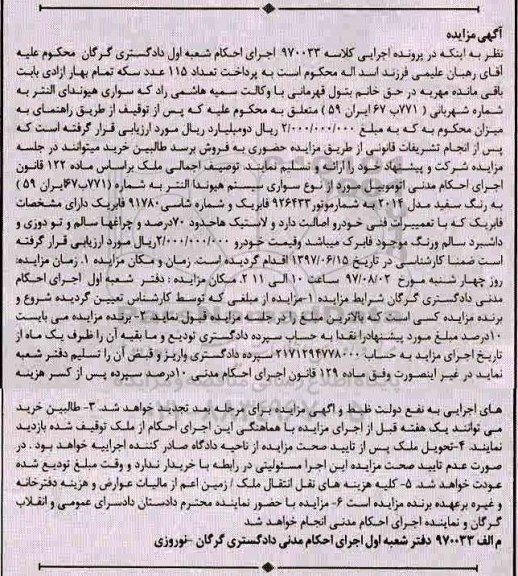 آگهی مزایده
نظر به اینکه در پرونده اجرایی کلاسه ۹۷۰۰۳۳ اجرای احکام شعبه اول دادگستری گرگان محکوم علیه
آقای رهبان علیمی فرزند اسد اله محکوم است به پرداخت تعداد ۱۱۵ عدد سکه تمام بهار آزادی بابت
باقی مانده مهریه در حق خانم بتول قهرمانی با وکالت سمیه هاشمی راد که سواری هیوندای النتر به
شماره شهربانی ( ۷۷۱ب ۶۷ ایران ۵۹ ) متعلق به محکوم علیه که پس از توقیف از طریق راهنمای به
میزان محکوم به که به مبلغ ۲/۰۰۰/۰۰۰/۰۰۰ ریال دومیلیارد ریال مورد ارزیابی قرار گرفته است که
پس از انجام تشریفات قانونی از طریق مزایده حضوری به فروش برسد طالبین خرید میتوانند در جلسه
مزایده شرکت و پیشنهاد خود را ارائه و تسلیم نمایند. توصیف اجمالی ملک براساس ماده ۱۲۲ قانون
اجرای احکام مدنی اتوموبیل مورد از نوع سواری سیستم هیوندا النتر به شماره (۷۷۱ب۶۷ایران ۵۹ )
به رنگ سفید مدل ۲۰۱۴ به شمارموتور۹۲۶۴۳۳ فابریک و شماره شاسی۹۱۷۸۰ فابریک دارای مشخصات
فابریک که با تعمییرات فنی خودرو اصالت دارد و لاستیک هاحدود ۷۰درصد و چراغها سالم و تو دوزی و
داشبرد سالم ورنگ موجود فابرک میباشد وقیمت خودرو ۲/۰۰۰/۰۰۰/۰۰۰ریال مورد ارزیابی قرار گرفته
است ضمنا کارشناسی در تاریخ ۱۳۹۷/۰۶/۱۵ اقدام گردیده است. زمان و مکان مزایده ۱. زمان مزایده:
روز چهار شنبه مورخ ۹۷/۰۸/۰۲ ساعت ۱۰ الی ۱۱ ۲. مکان مزایده : دفتر شعبه اول اجرای احکام
مدنی دادگستری گرگان شرایط مزایده ۱-مزایده از مبلغی که توسط کارشناس تعیین گردیده شروع و
برنده مزایده کسی است که بالاترین مبلغ را در جلسه مزایده قبول نماید ۲- برنده مزایده می بایست
۱۰درصد مبلغ مورد پیشنهادرا نقدا به حساب سپرده دادگستری تودیع و مابقیه آن را ظرف یک ماه از
تاریخ اجرای مزاید به حساب ۲۱۷۱۲۹۴۷۷۸۰۰۰ سپرده دادگستری واریز و قبض آن را تسلیم دفتر شعبه
نماید در غیر اینصورت وفق ماده ۱۲۹ قانون اجرای احکام مدنی ۱۰درصد سپرده پس از کسر هزینه
های اجرایی به نفع دولت ظبط و آگهی مزایده برای مرحله بعد تجدید خواهد شد. ۳- طالبین خرید
می توانند یک هفته قبل از اجرای مزایده با هماهنگی این اجرای احکام از ملک توقیف شده بازدید
نمایند. ۴-تحویل ملک پس از تایید صحت مزایده از ناحیه دادگاه صادر کننده اجراییه خواهد بود . در
صورت عدم تایید صحت مزایده این اجرا مسئولیتی در رابطه با خریدار ندارد و وقت مبلغ تودیع شده
عودت خواهد شد. ۵- کلیه هزینه های نقل انتقال ملک / زمین اعم از مالیات عوارض و هزینه دفترخانه
و غیره برعهده برنده مزایده است ۶- مزایده با حضور نماینده محترم دادستان دادسرای عمومی و انقلاب
گرگان و نماینده اجرای احکام مدنی انجام خواهد شد
م الف ۹۷۰۰۳۳ دفتر شعبه اول اجرای احکام مدنی دادگستری گرگان -نوروزی